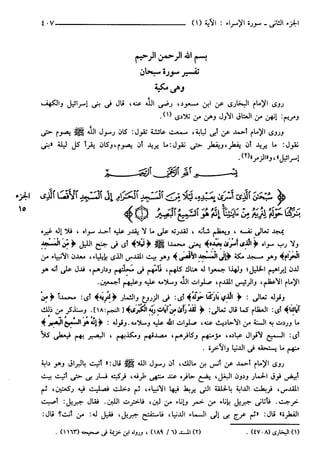 الجزء الثانى ـ سورة الإسراء : الآية (١) ٤٠٧
بسم الله الرحمن الرحيم
تفسير سورة سبحان
وهى مكية
روى الإمام البخارى عن ابن مسعود، رضى الله عنه، قال فى بنى إسرائيل والكهف
ومريم: إنهن من العتاق الأول وهن من تلادى (١).
وروى الإمام أحمد عن أبى لبابة، سمعت عائشة تقول: كان رسول الله ﷺ يصوم حتى
نقول: ما يريد أن يفطر، ويفطر حتى نقول: ما يريد أن يصوم، وكان يقرأ كل ليلة «بنى
إسرائيل»، و«الزمر»(٢).
بسم الله الرحمن الرحيم
﴿ سُبْحَٰنَ ٱلَّذِىٓ أَسْرَىٰ بِعَبْدِهِۦ لَيْلًا مِّنَ ٱلْمَسْجِدِ ٱلْحَرَامِ إِلَى ٱلْمَسْجِدِ ٱلْأَقْصَا ٱلَّذِى الجزء
بَٰرَكْنَا حَوْلَهُۥ لِنُرِيَهُۥ مِنْ ءَايَٰتِنَآ إِنَّهُۥ هُوَ ٱلسَّمِيعُ ٱلْبَصِيرُ ۝١ ﴾ ١٥
يمجد تعالى نفسه ، ويعظم شأنه ، لقدرته على ما لا يقدر عليه أحد سواه ، فلا إله غيره
ولا رب سواه ﴿الذي أسرى بعبده﴾ يعنى محمداً ﷺ ﴿ليلاً﴾ أى فى جنح الليل ﴿من المسجد
الحرام﴾ وهو مسجد مكة ﴿إلى المسجد الأقصى﴾ وهو بيت المقدس الذى بإيلياء، معدن الأنبياء من
لدن إبراهيم الخليل؛ ولهذا جمعوا له هناك كلهم، فأمهم فى محلتهم ودارهم، فدل على أنه هو
الإمام الأعظم، والرئيس المقدم، صلوات الله وسلامه عليه وعليهم أجمعين.
وقوله تعالى : ﴿ الذي باركنا حوله﴾ أى: فى الزروع والثمار ﴿لنريه﴾ أى: محمداً ﴿من
آياتنا﴾ أى: العظام كما قال تعالى: ﴿ لقد رأى من آيات ربه الكبرى﴾ [النجم:١٨]. وسنذكر من ذلك
ما وردت به السنة من الأحاديث عنه، صلوات الله عليه وسلامه. وقوله : ﴿ إنه هو السميع البصير ﴾
أى: السميع لأقوال عباده، مؤمنهم وكافرهم، مصدقهم ومكذبهم ، البصير بهم فيعطى كلاً
منهم ما يستحقه فى الدنيا والآخرة .
روى الإمام أحمد عن أنس بن مالك، أن رسول الله ﷺ قال: « أتيت بالبراق وهو دابة
أبيض فوق الحمار ودون البغل، يضع حافره عند منتهى طرفه، فركبته فسار بى حتى أتيت بيت
المقدس، فربطت الدابة بالحلقة التى يربط فيها الأنبياء، ثم دخلت فصليت فيه ركعتين، ثم
خرجت. فأتانى جبريل بإناء من خمر وإناء من لبن، فاخترت اللبن. فقال جبريل: أصبت
الفطرة» قال: «ثم عرج بى إلى السماء الدنيا، فاستفتح جبريل، فقيل له: من أنت؟ قال:
(١) البخارى (٤٧٠٨). (٢) المسند (٦ / ١٨٩) ، ورواه ابن خزيمة فى صحيحه (١١٦٣).